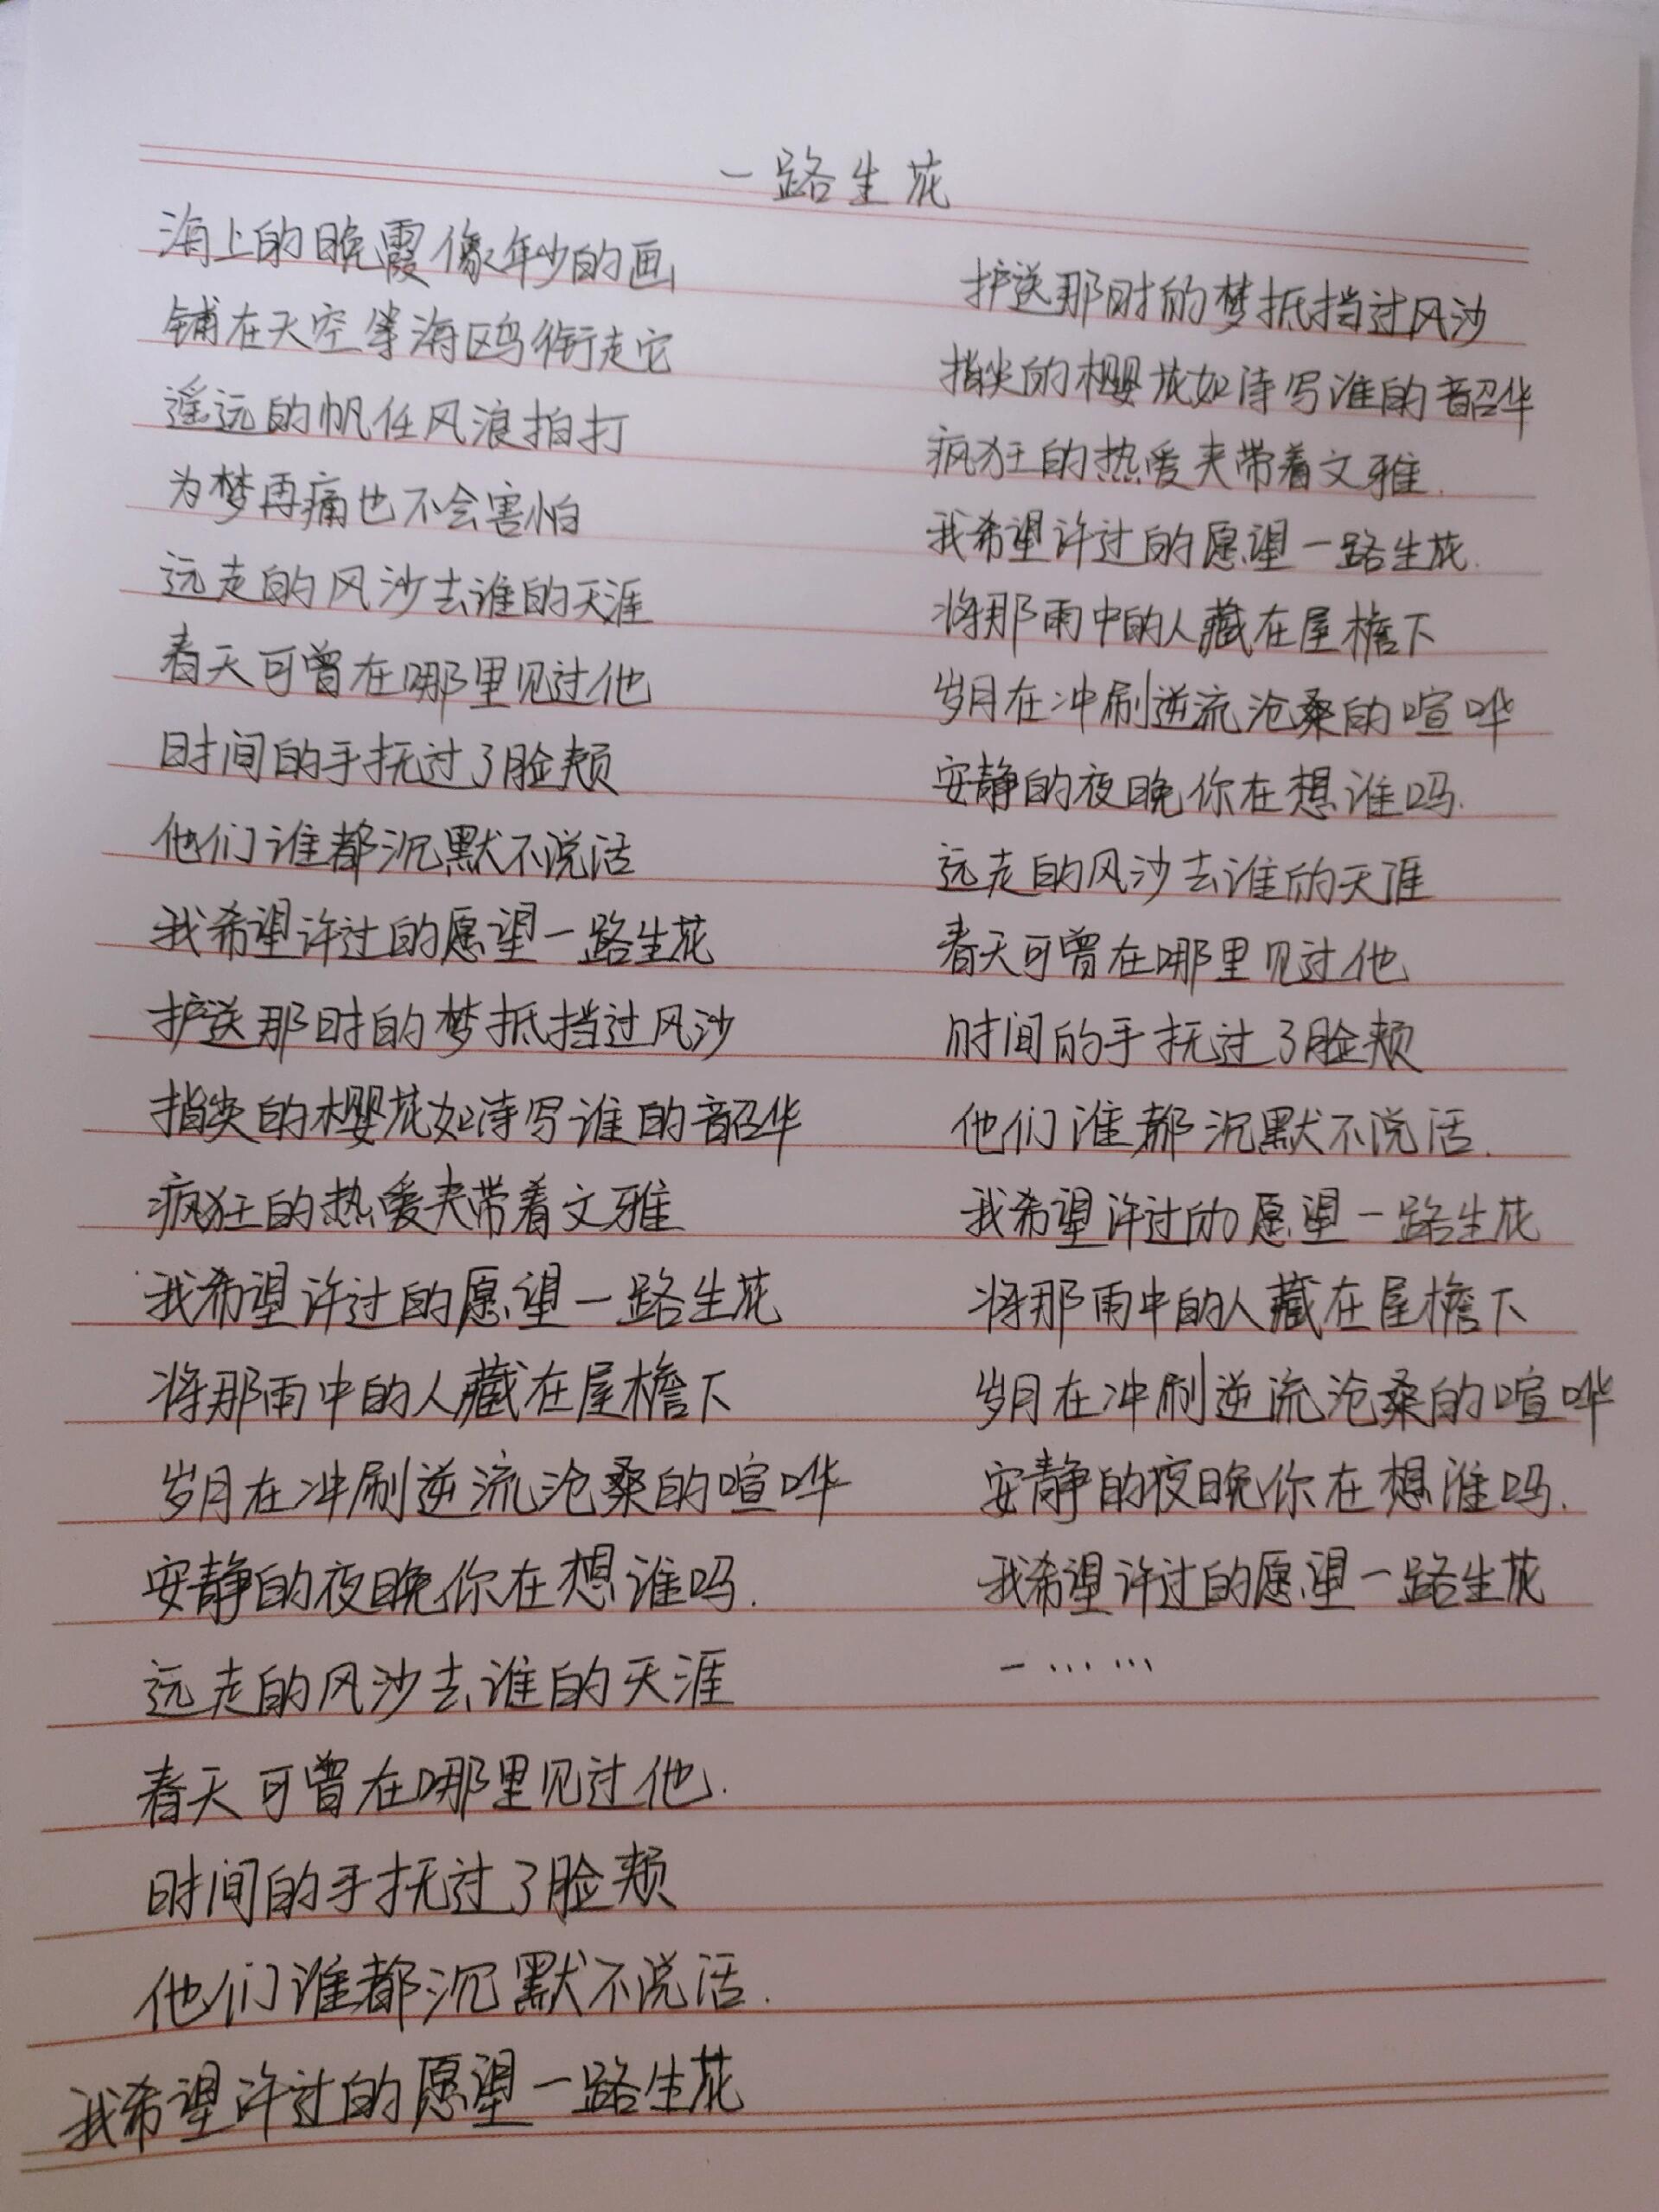 一路生花
海上的晚霞像年少的画
铺在天空等海鸥衔走它
遥远的帆任风浪拍打
为梦再痛也不会害怕
远走的风沙去谁的天涯
春天可曾在哪里见过他
时间的手抚过了脸颊
他们谁都沉默不说话
我希望许过的愿望一路生花
护送那时的梦抵挡过风沙
指尖的樱花如诗写谁的韶华
疯狂的热爱夹带着文雅
我希望许过的愿望一路生花
将那雨中的人藏在屋檐下
岁月在冲刷逆流沧桑的喧哗
安静的夜晚你在想谁吗.
远走的风沙去谁的天涯
春天可曾在哪里见过他.
时间的手抚过了脸颊
他们谁都沉默不说话.
我希望许过的愿望一路生花
护送那时的梦抵挡过风沙
指尖的樱花如诗写谁的韶华
疯狂的热爱夹带着文雅.
我希望许过的愿望一路生花.
将那雨中的人藏在屋檐下
岁月在冲刷逆流沧桑的喧哗
安静的夜晚你在想谁吗.
远走的风沙去谁的天涯
春天可曾在哪里见过他
时间的手抚过了脸颊
他们谁都沉默不说话.
我希望许过的愿望一路生花
将那雨中的人藏在屋檐下
岁月在冲刷逆流沧桑的喧哗
安静的夜晚你在想谁吗.
我希望许过的愿望一路生花
一……